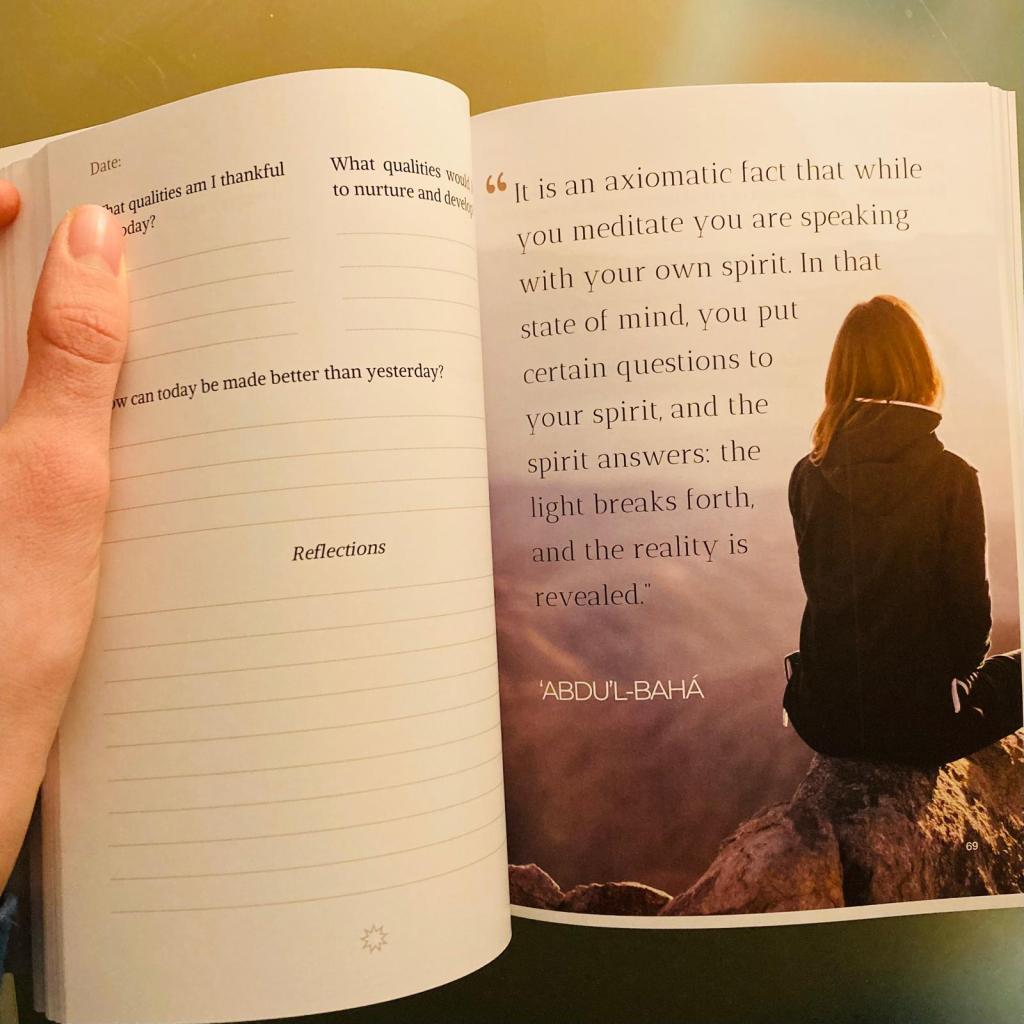 Date:
What qualities am I thankful
today?
What qualities would
to nurture and develop
How can today be made better than yesterday?
Reflections
“ It is an axiomatic fact that while
you meditate you are speaking
with your own spirit. In that
state of mind, you put
certain questions to
your spirit, and the
spirit answers: the
light breaks forth,
and the reality is
revealed."
‘ABDU’L-BAHÁ
69